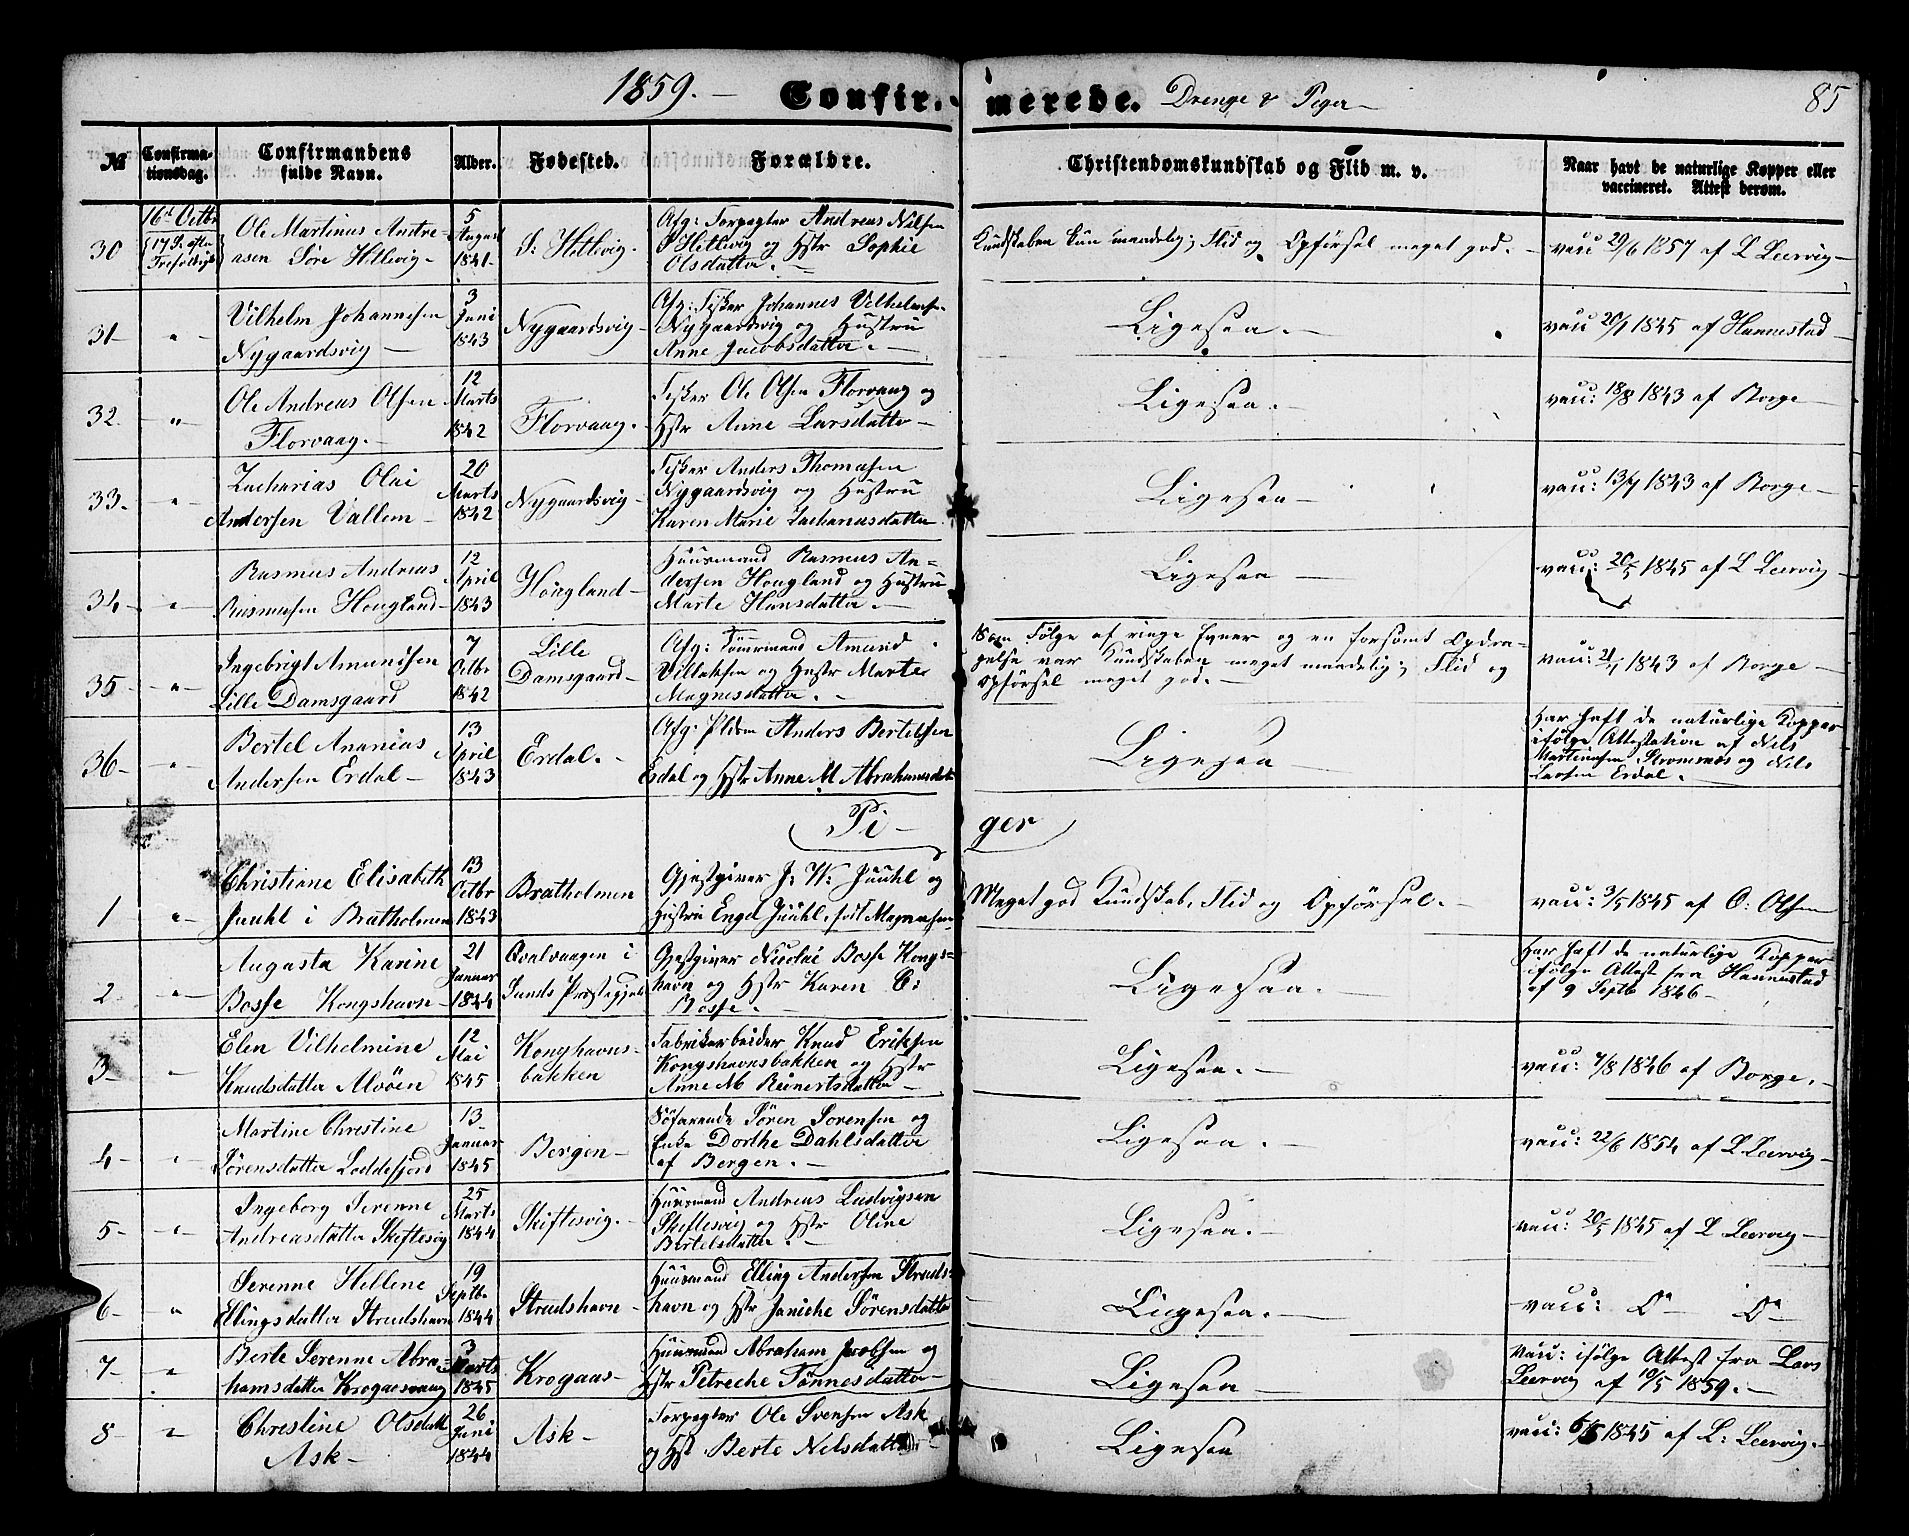 1859. — Confirmerede. Drenge & Piger — 85
No Confirmationsdag. Confirmandens fulde Navn. Alder. Fødested. Forældre. Christendomskundskab og Flid m. v. Naar havt de naturlige Kopper eller vaccineret. Attest derom.
16de Octbr
17 S. efter
Trefoldigh
30 Ole Martinus Andre-
asen Søre Hetlevig —
5 August 1841 —
S: Hetlevig —
Afg: Forpagter Andreas Nilsen
S Hetlevig og Hstr Sophie
Olsdatter. —
Kundskaben kun maadelig; Flid og Opførsel meget god. —
vacc 29/6 1857 af L Leervig —
31 — " — Vilhelm Johannesen
Nygaardsvig —
3 Juni 1843
Nygaardsvig —
Afg: Fisker Johannes Vilhelmsen
Nygaardsvig og Hustru
Anne Jacobsdatter. —
Ligesaa. —
1845 af Hannestad —
32. — " — Ole Andreas Olsen
Florvaag. —
12 Marts 1842
Florvaag. —
Fisker Ole Olsen Florvaag og
Hstr Anne Larsdatter —
Ligesaa. —
vacc: 18/8 1843 af Borge —
33. " Zacharias Olai
Andersen Vallem —
20 Marts 1842
Nygaardsvig —
Fisker Anders Thomasen
Nygaardsvig og Hustru
Karen Marie Zachariasdatter
Ligesaa —
1843 af Borge —
34 — " — Rasmus Andreas
Rasmusen Hougland —
12 April 1843
Hougland —
Huusmand Rasmus An-
dersen Hougland og Hustru
Marte Hansdatter. —
Ligesaa —
vacc: 20/5 1845 af L Leervig —
35 — " — Ingebrigt Amundsen
Lille Damsgaard
7 Octbr 1842
Lille
Damsgaard —
Afg: Tømrmand Amund
og Hustr Marte
Magnesdatter. —
Som Følge af ringe Evner og en forsømt Opdra-
gelse var Kundskaben meget maadelig; Flid og
Opførsel meget god. —
1843 af Borge —
36 — " — Bertel Ananias
Andersen Erdal —
13 April 1843
Erdal. —
Afg. Anders Bertelsen
Erdal og Hstr Anne M Abrahamsdatr
Ligesaa —
Har haft de naturlige Kopper
ifølge Attestation af Nils
Martinusen Stromsnæs og Nils
Larsen Erdal. —
Pi — ger
1 " Christiane Elisabeth
Juuhl i Bratholmen
13 Octbr 1843
Bratholmen
Gjestgiver J: W: Juuhl og
Hustru Engel Juuhl, født Magnesen
Meget god Kundskab, Flid og Opførsel. —
vacc: 3/5 1845 af O: Olsen
2. " Augusta Karine
Bosse Kongshavn —
21 Januar 1844
Qvalvaagen i
Sunds Præstegjeld
Gjestgiver Nicolai Bosse Kongs=
havn og Hstr Karen C:
Bosse. —
Ligesaa. —
Har haft de naturlige Kopper
ifølge Attest fra Hannestad
af 9 Septb 1846 —
3 — — Elen Vilhelmine
Knudsdatter Alvøen
12 Mai 1845
Konghavns-
bakken
Fabrikarbeider Knud Eriksen
Kongshavnsbakken og Hstr
Anne M Reinertsdatter —
Ligesaa. —
1846 af Borge. —
4 — " Martine Christine
Sørensdatter Loddefjord
13 Januar 1845
Bergen —
Søfarende Søren Sorensen og
Enke Dorthe Dahlsdatter
af Bergen. —
Ligesaa. —
vacc: 22/6 1854 af L Leervig —
5 — " Ingeborg Serenne
Andreasdatter Skiftesvig
25 Marts 1844
Skiftesvig. —
Huusmand Andreas Ludvigsen
Skiftesvig og Hstr Oline
Bertelsdatter. —
Ligesaa. —
vacc: 20/5 1845 af L Leervig —
6 — " Serenne Hellene
Ellingsdatter Strudshavn
19 Septbr 1844
Strudshavn —
Huusmand Elling Andersen Struds=
havn og Hstr Janiche Sørensdatter
Ligesaa. —
vacc: Do — Do —
7 — " Berte Serenne Abra=
hamsdatter Krogaasvaag
3 Marts 1845
Krogaas —
Huusmand Abraham Jacobsen og
Hstr Petreche Tønnesdatter —
Ligesaa —
Vacc: ifølge Attest fra Lars
Leervig af 10/5 1859. —
8 — " Christine Olsdatter
Ask —
26 Juni 1844
Ask —
Forpagter Ole Svensen Ask
og Hst Berte Nelsdatter —
Ligesaa
1845 af L: Leervig. —